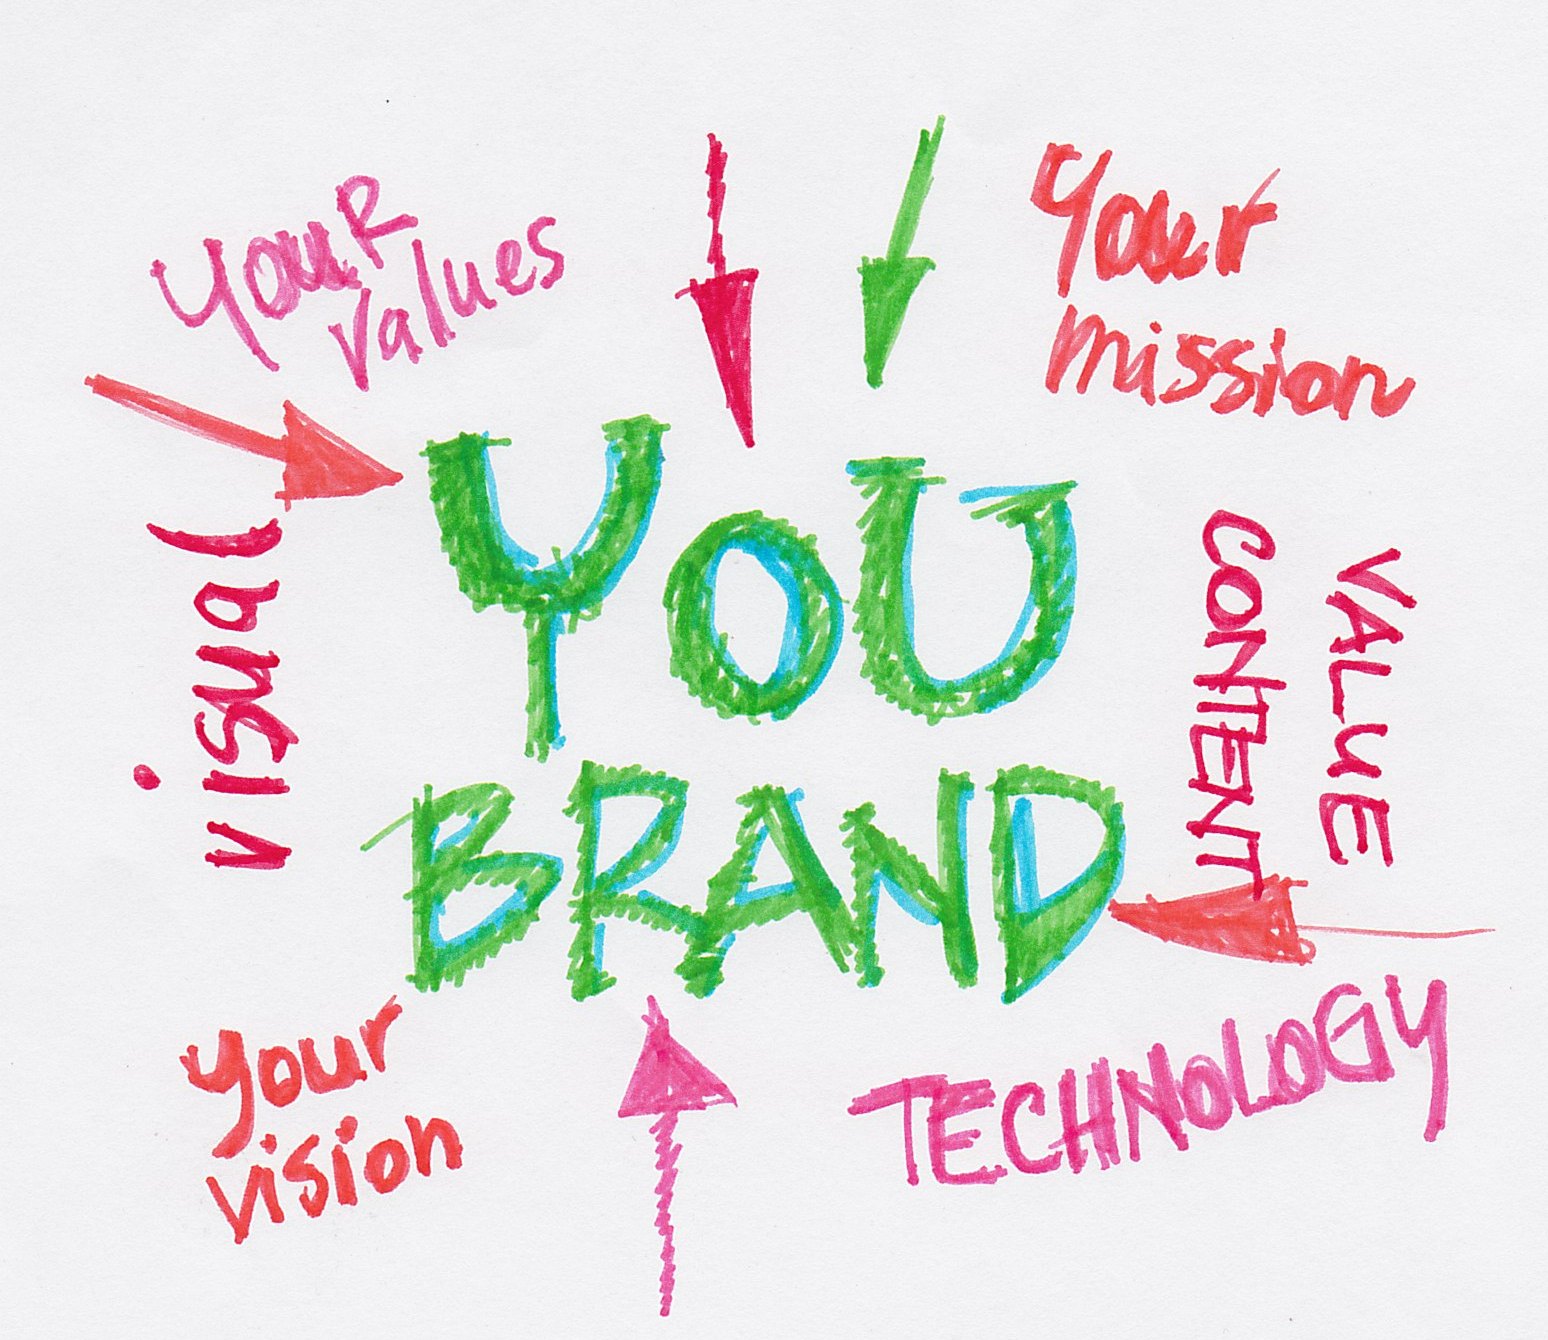 youR
values
Your
mission
visual
YOU
BRAND
VALUE
CONTENT
your
vision
TECHNOLOGY